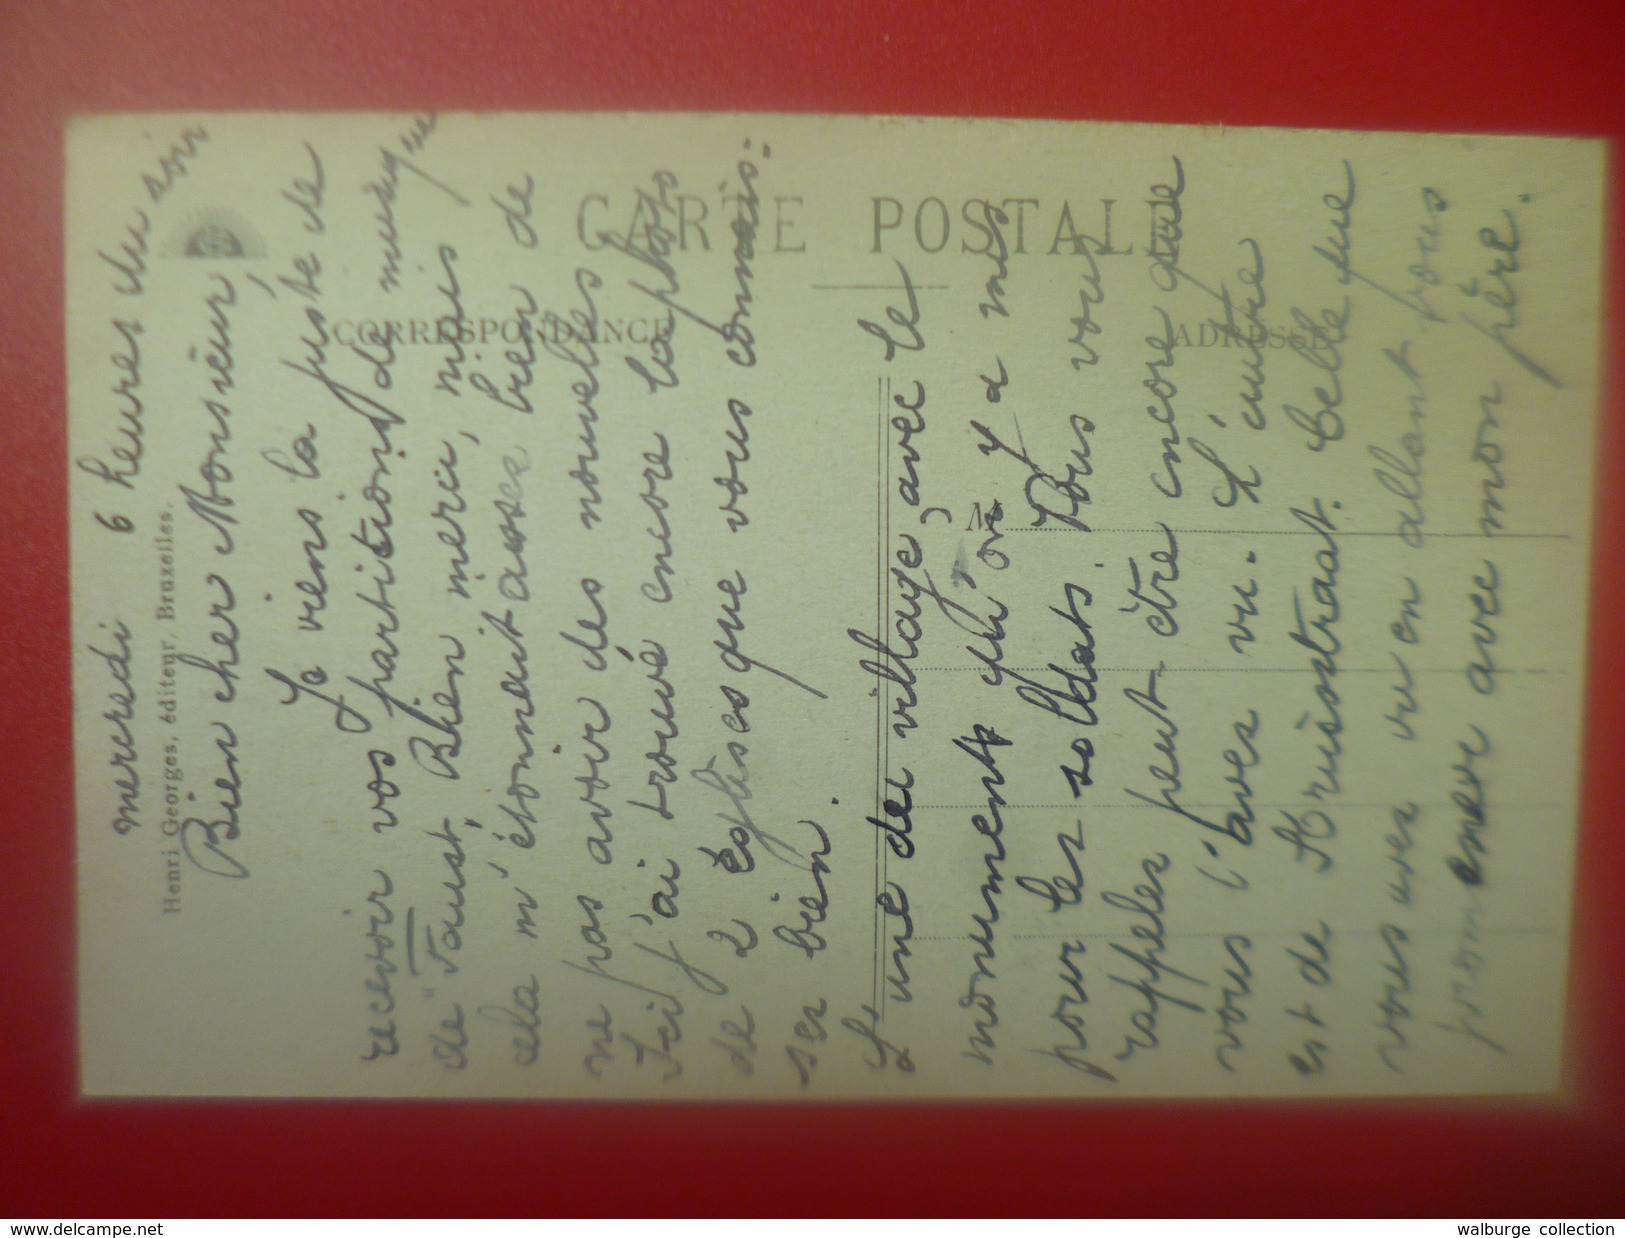 mercredi 6 heures du soir
Henri Georges, éditeur, Bruxelles.
Bien cher Monsieur,
Je viens la juste de
recevoir vos partitions de musique
de "Faust". Bien merci, mais
cela m'étonnait assez bien de
ne pas avoir des nouvelles
Ici j'ai trouvé encore la photo
de 2 églises que vous connais=
sez bien.
L'une du village, avec le
monument qu'on y a mis
pour les soldats. Vous vous
rappelez peut-être encore que
vous l'avez vu. L'autre
est de Kruisstraat. Celle que
vous avez vu en allant vous
promener avec mon père.
CARTE POSTALE
CORRESPONDANCE
ADRESSE
M
www.delcampe.net
walburge collection